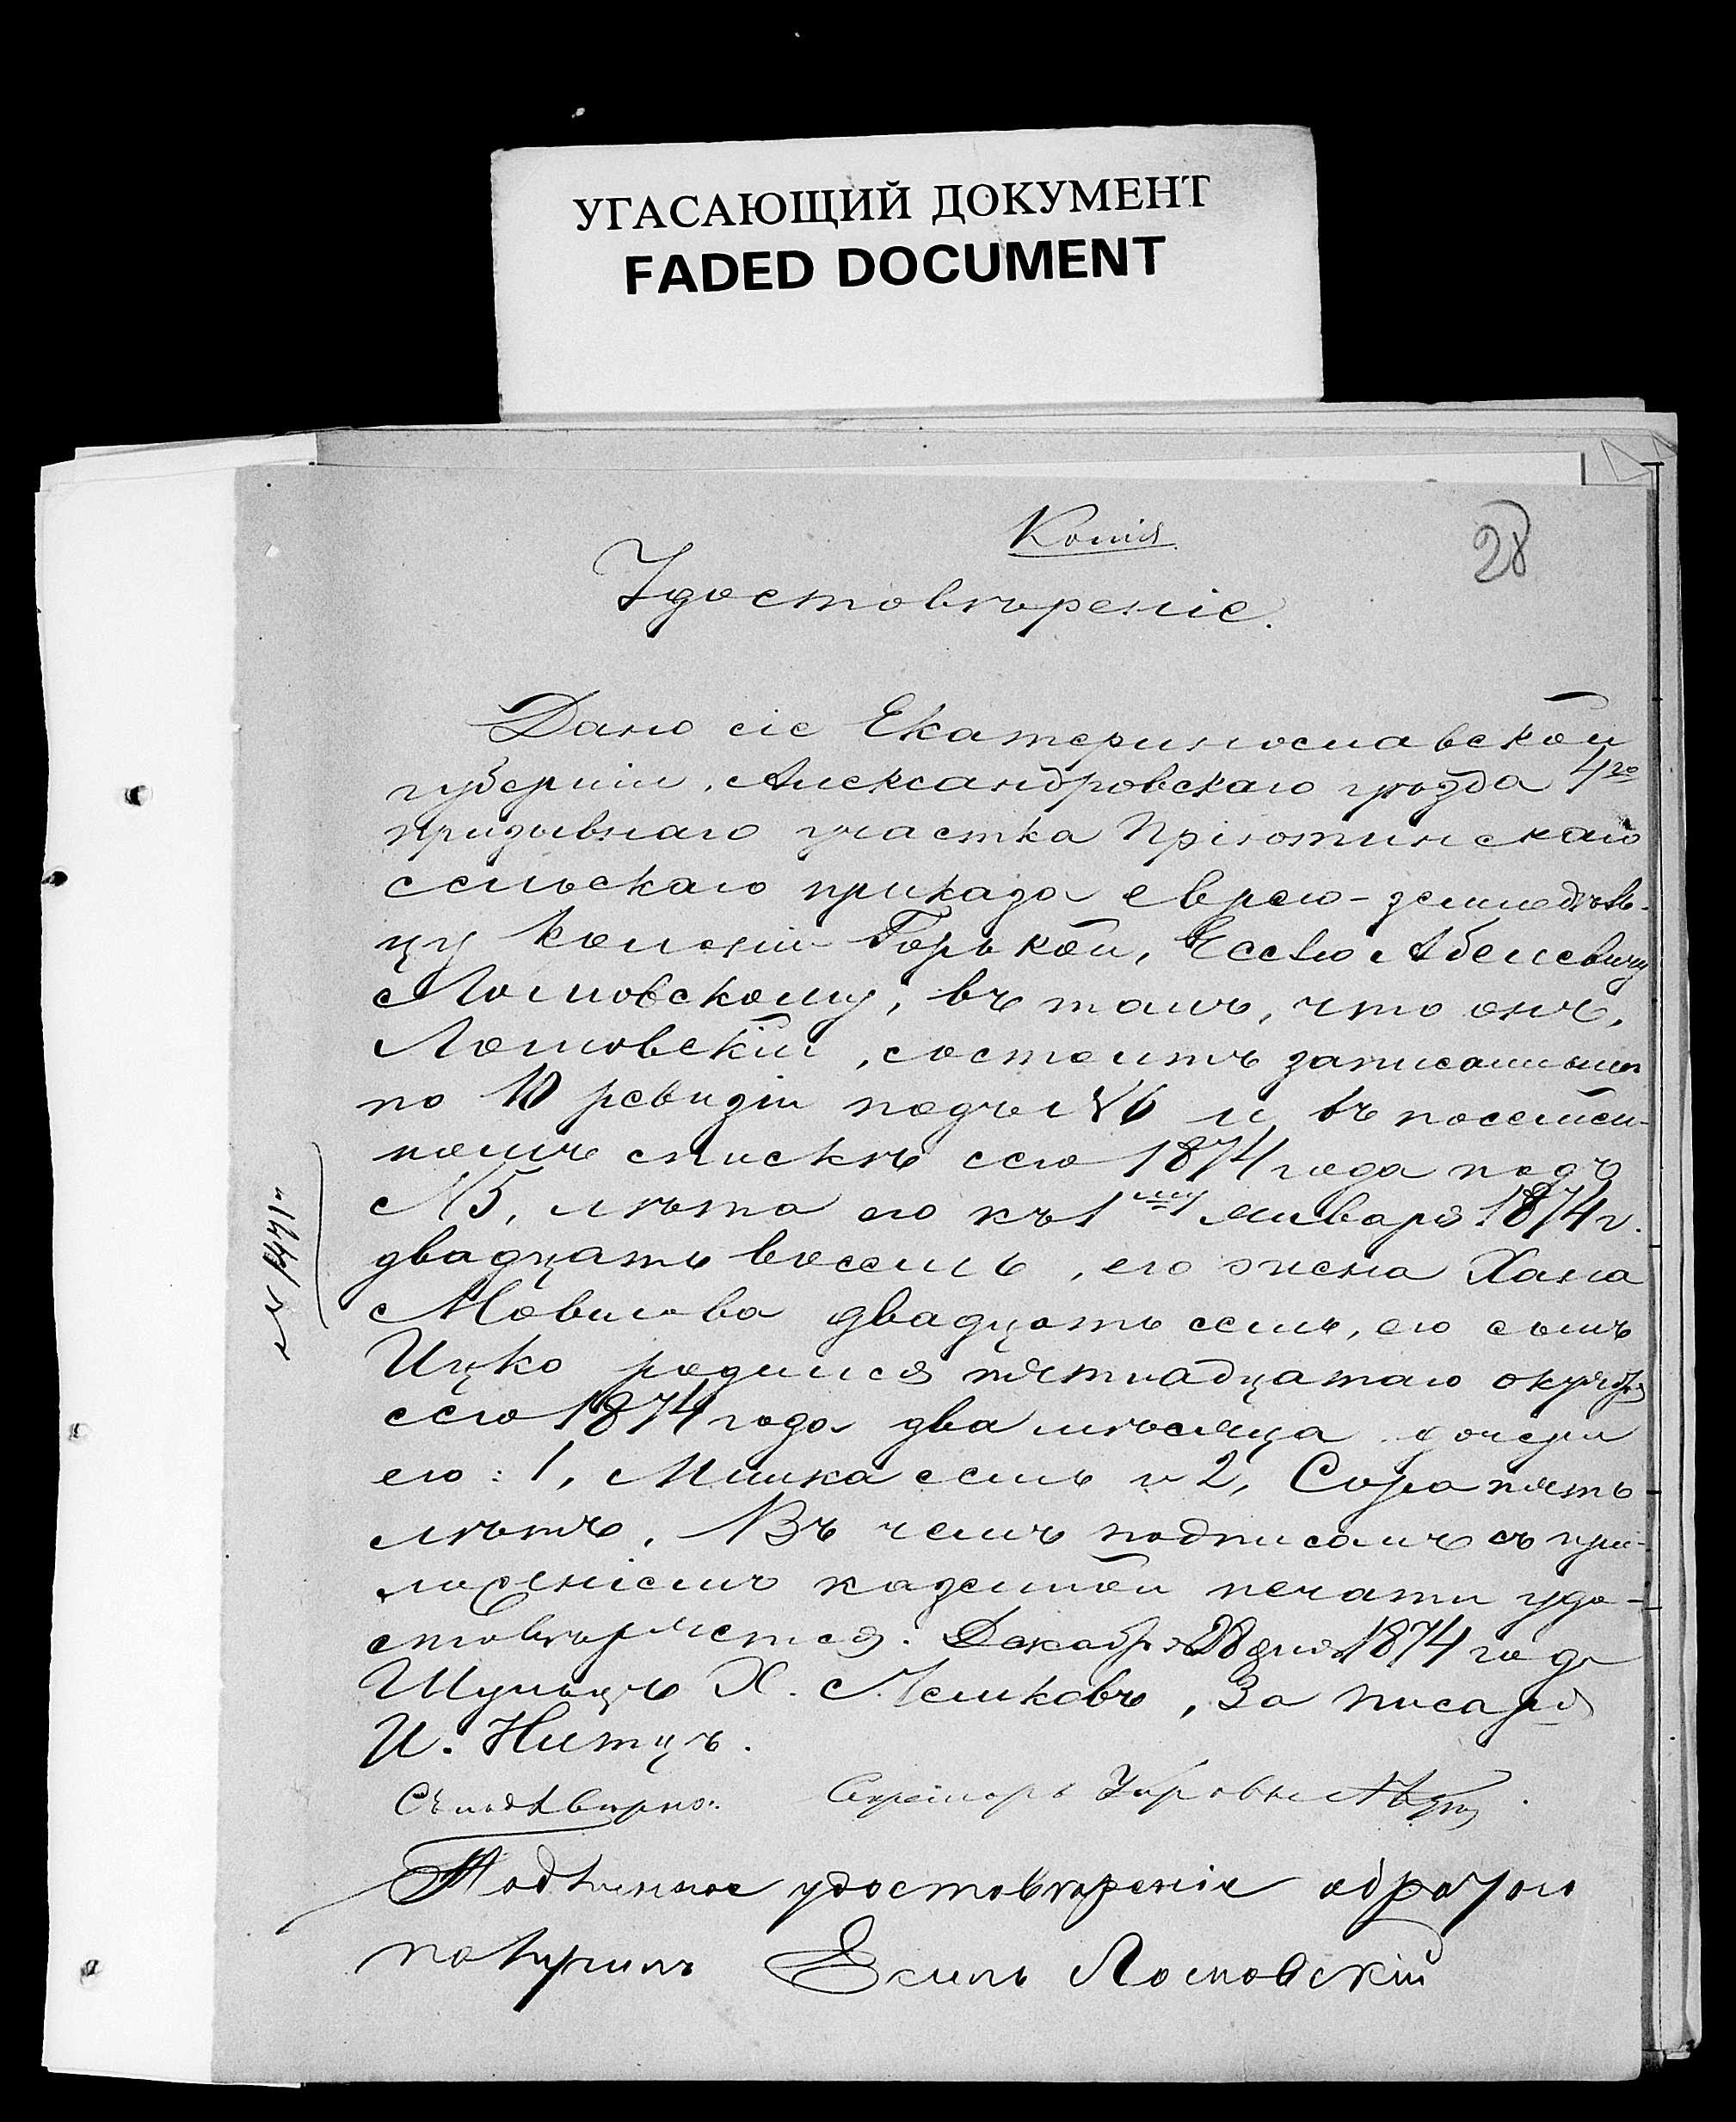 УГАСАЮЩИЙ ДОКУМЕНТ
FADED DOCUMENT
Копія
28
Удостовѣреніе.
Дано сіе Екатеринославской
губерніи, Александровскаго уѣзда 4го
призывнаго участка Пріютинскаго
сельскаго приказа еврею-земледѣль-
цу колоніи Горькой, Абелевичу
Ломовскому, въ томъ, что онъ,
Ломовскій, состоитъ записаннымъ
по 10 ревизіи подъ №6 и въ посемей-
номъ спискѣ сего 1874 года подъ
№5, лѣта его къ 1му января 1874 г.
двадцать восемь, его жена Хана
Мовшова двадцать семь, его сынъ
Ицко родился пятнадцатаго октября
сего 1874 года два мѣсяца дочери
его: 1, Минка семь и 2, Сора пять
лѣтъ. Въ чемъ подписомъ съ при-
ложеніемъ казенной печати удо-
стовѣряется. Декабря 28 дня 1874 года
Шульцъ Х. Лешковъ, За писаря
И. Нитцъ.
Съ подл. вѣрно: Секретарь
Подлинное удостовѣреніе обратно
получилъ Ломовскій
№ 1471